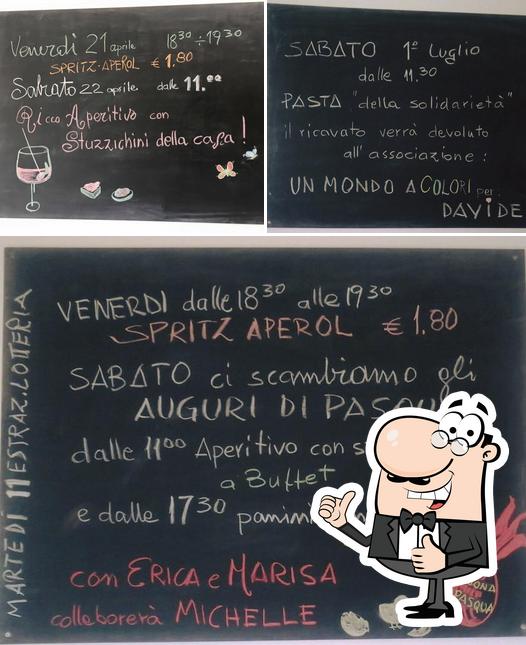 Venerdì 21 aprile 18³⁰ ÷ 19³⁰
SPRITZ-APEROL € 1.80
Sabato 22 aprile dalle 11.⁰⁰
Ricco Aperitivo con
Stuzzichini della casa!
SABATO 1° luglio
dalle 11.30
PASTA "della solidarietà"
il ricavato verrà devoluto
all'associazione:
UN MONDO A COLORI per
DAViDE
MARTEDÌ 11 ESTRAZ. LOTTERIA
VENERDÌ dalle 18³⁰ alle 19³⁰
SPRITZ APEROL € 1.80
SABATO ci scambiamo gli
AUGURI DI PASQU
dalle 11⁰⁰ Aperitivo con
a Buffet
e dalle 17³⁰ panin
con ERICA e MARISA
collaborerà MICHELLE
PASQUA